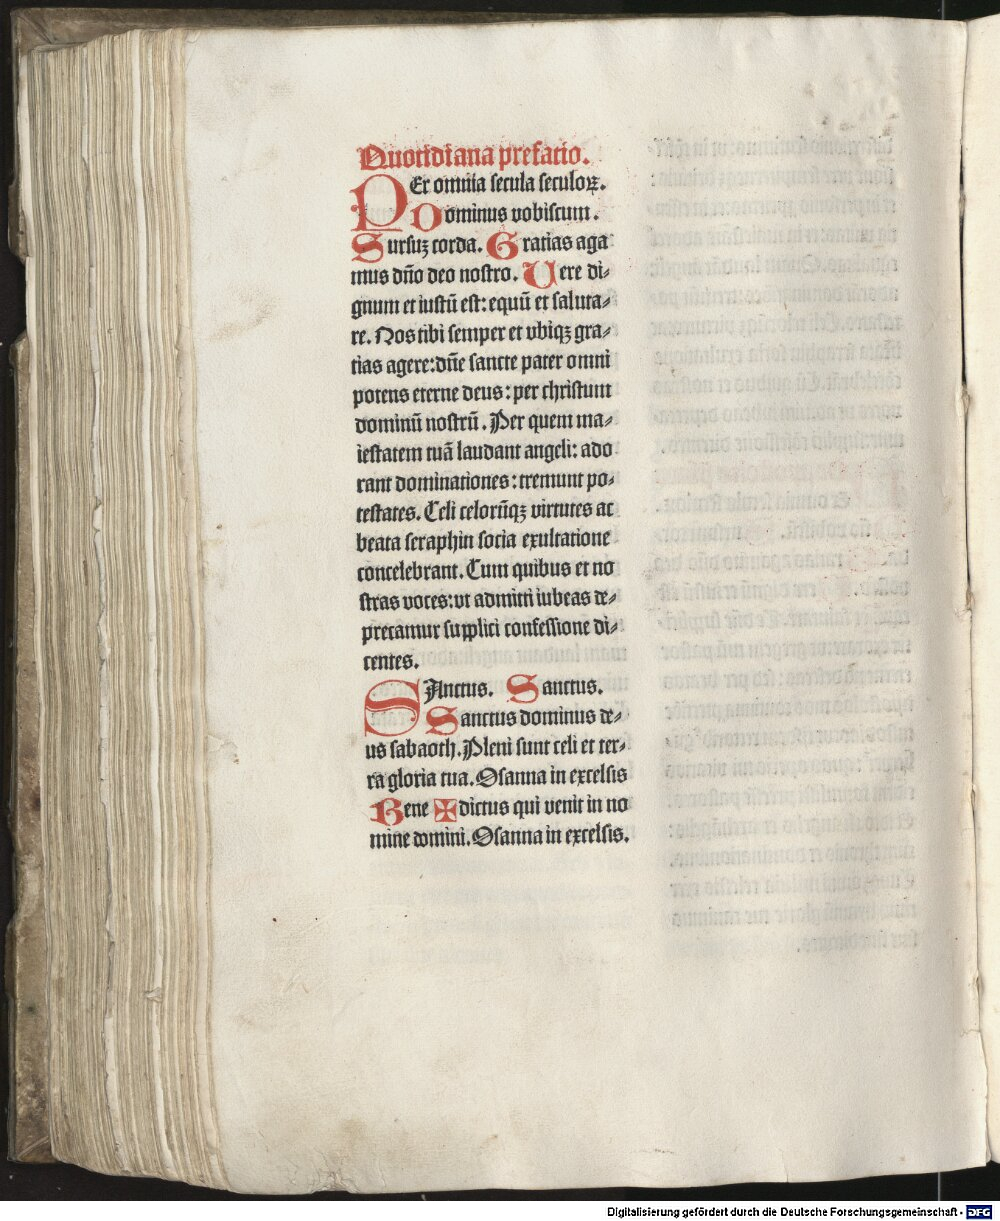 Quotidiana prefatio.
PEr omnia secula seculoꝝ.
Dominus vobiscum.
Sursuꝫ corda. Gratias aga
mus dño deo nostro. Vere di⸗
gnum et iustū est: equū et saluta⸗
re. Nos tibi semper et vbiqꝫ gra⸗
tias agere: dñe sancte pater omni
potens eterne deus: per christum
dominū nostrū. Per quem ma⸗
iestatem tuā laudant angeli: ado
rant dominationes: tremunt po⸗
testates. Celi celorūqꝫ virtutes ac
beata seraphin socia exultatione
concelebrant. Cum quibus et no
stras voces: vt admitti iubeas de⸗
precamur supplici confessione di⸗
centes.
SAnctus. Sanctus.
Sanctus dominus de⸗
us sabaoth. Pleni sunt celi et ter⸗
ra gloria tua. Osanna in excelsis
Bene ✠ dictus qui venit in no
mine domini. Osanna in excelsis.
Digitalisierung gefördert durch die Deutsche Forschungsgemeinschaft - DFG